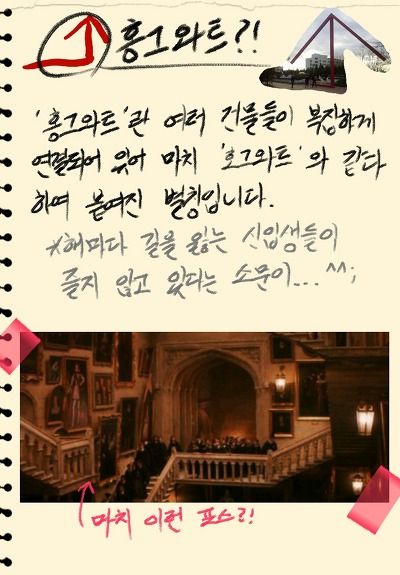 홍그와트?!
'홍그와트'란 여러 건물들이 복잡하게
연결되어 있어 마치 '호그와트'와 같다
하여 붙여진 별칭입니다.
*해마다 길을 잃는 신입생들이
줄지 않고 있다는 소문이... ^^;
마치 이런 포스?!